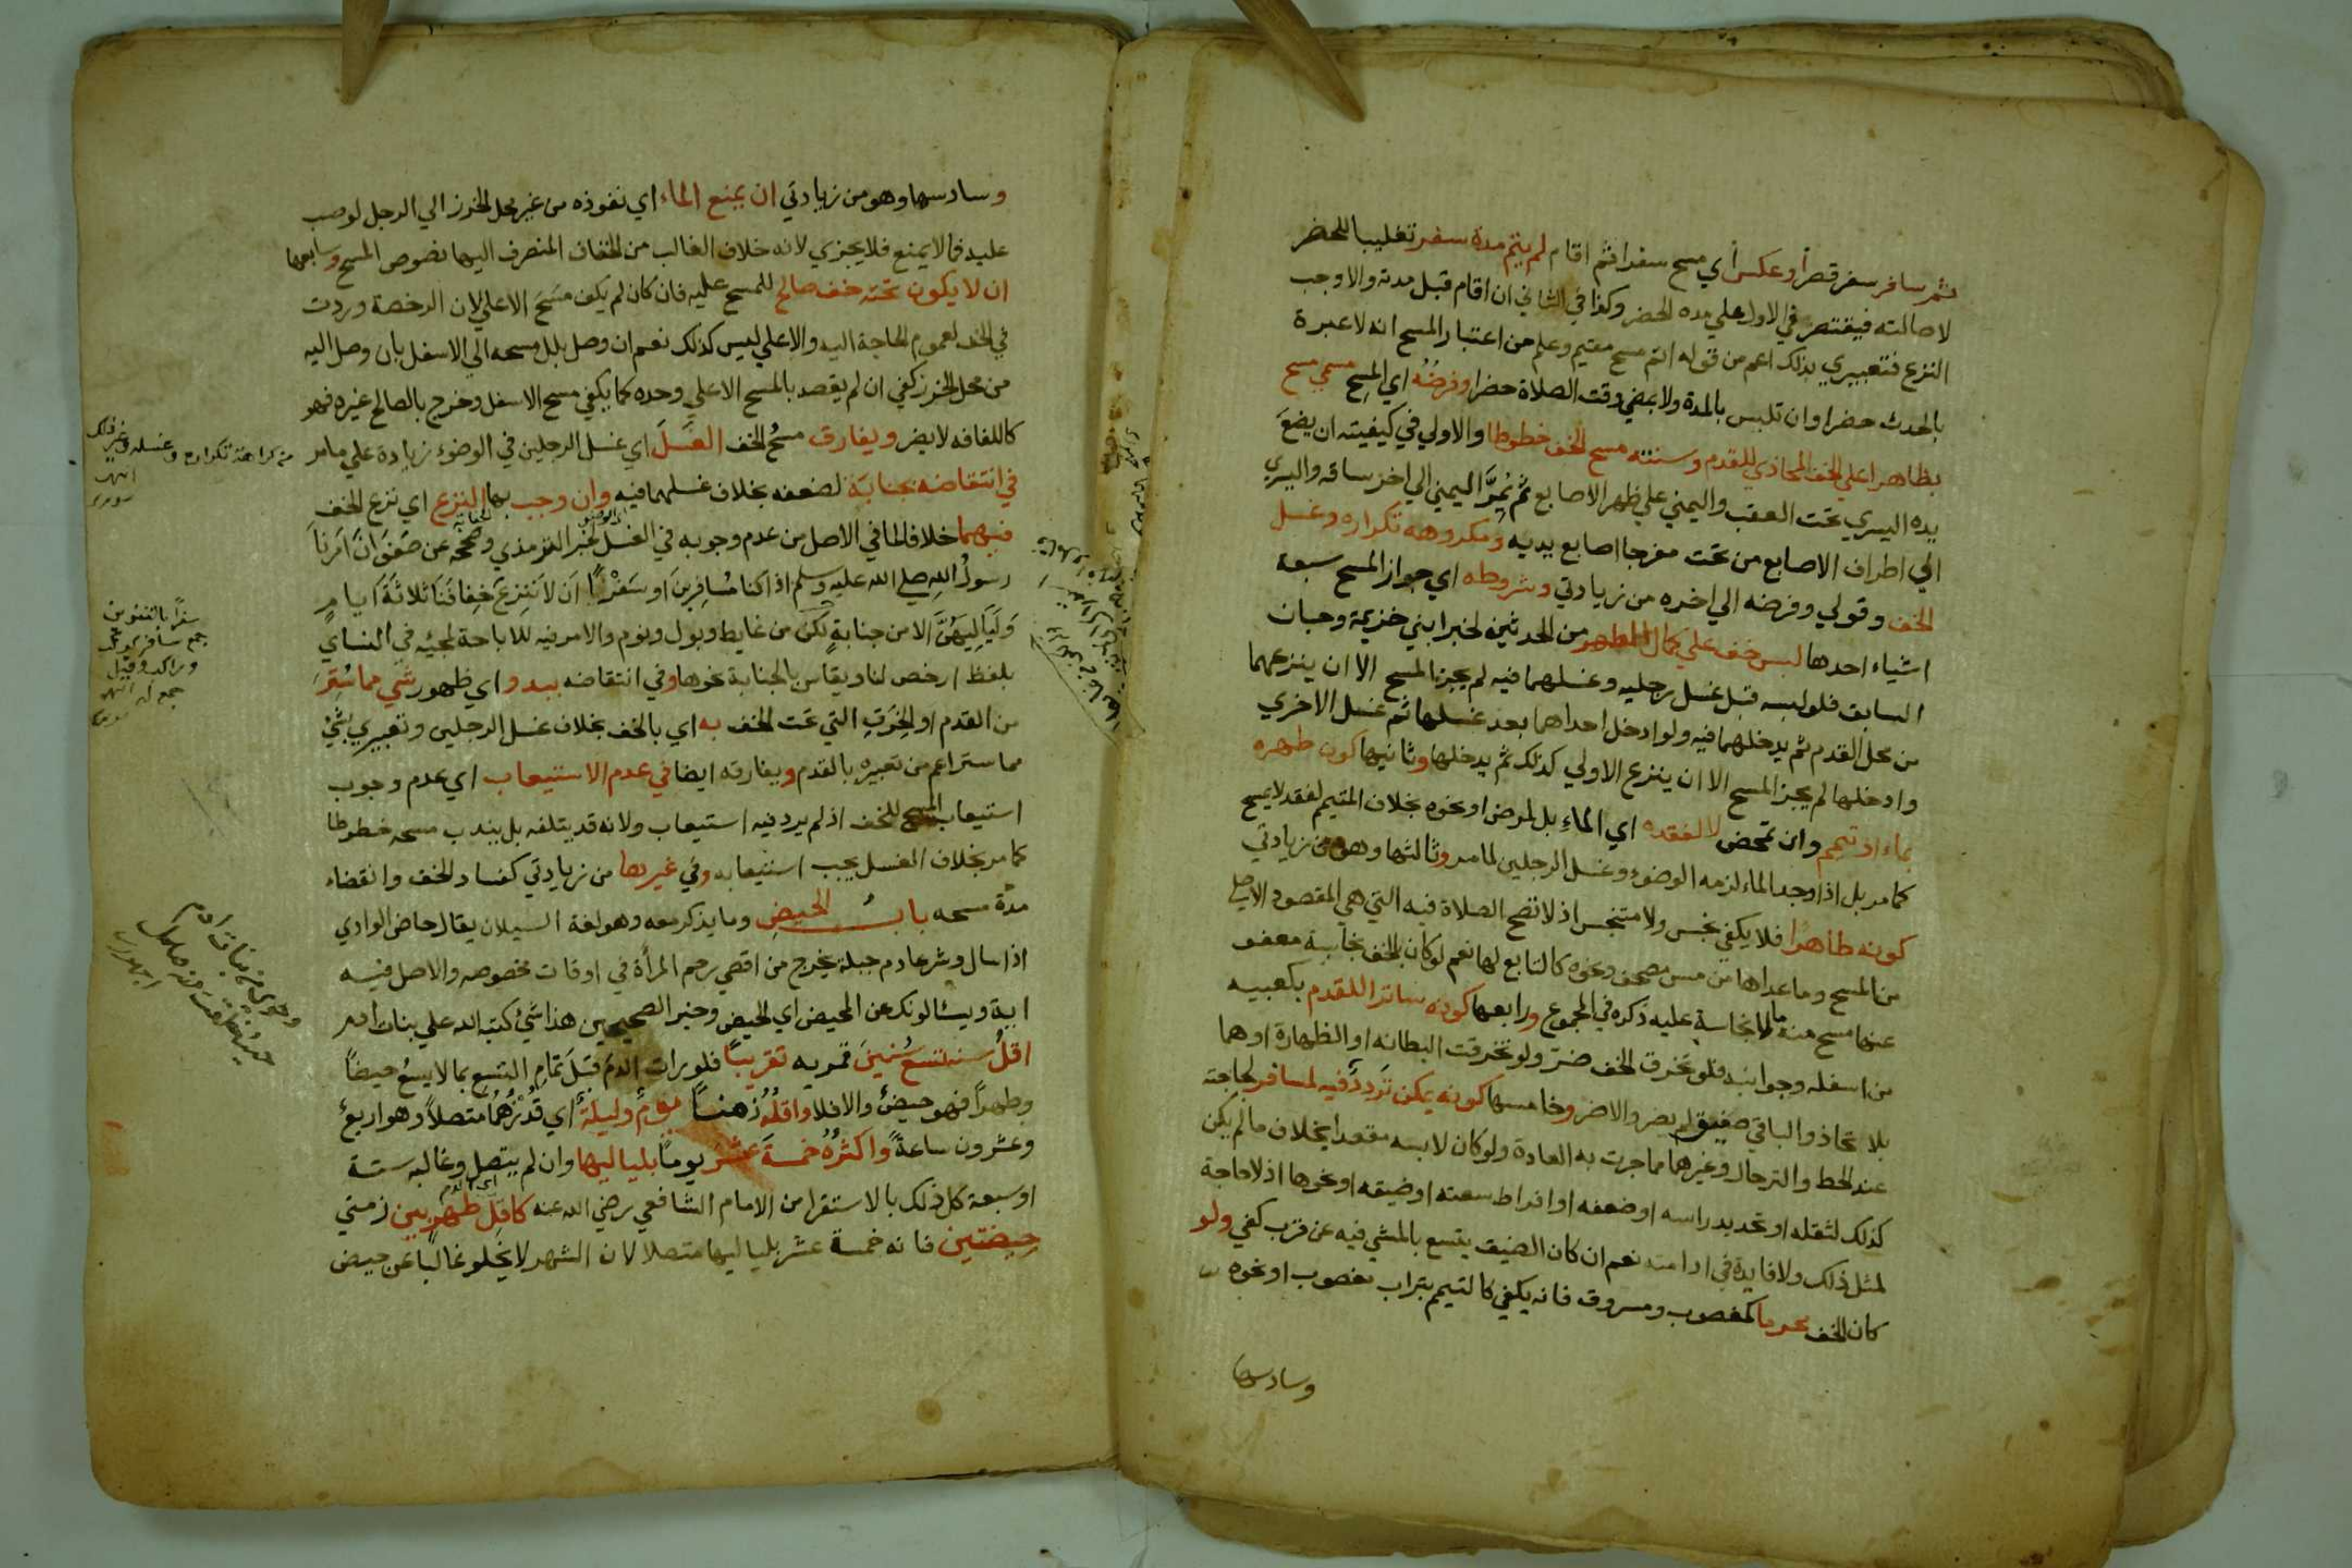 ثم سافر سفر قصر او عكس اي مسح سفرا ثم اقام لم يتم مدة سفر تغليبا للحضر
لاصالته فيقتصر في الاول علي مده الحضر وكذا في الثاني ان اقام قبل مدته والا وجب
النزع فتعبيري بذلك اعم من قوله اتم مسح مقيم وعلم من اعتبار المسح انه لا عبرة
بالحدث حضرا وان تلبس بالمدة ولا بمضي وقت الصلاة حضرا وفرضُه اي المسح مسمي مسح
بظاهر اعلي الخف المحاذي للقدم وسننه مسح الخف خطوطا والاولي في كيفيته ان يضعَ
يده اليسري تحت العقب واليمني علي ظهر الاصابع ثم يُمِرَّ اليمني الي اخر ساقه واليسري
الي اطراف الاصابع من تحت مفرجا اصابع يديه ومكروهه تكراره وغسل
الخف وقولي وفرضه الي اخره من زيادتي وشروطه اي جواز المسح سبعة
اشياء احدها لبس خف علي كمال الطهر من الحدثين لخبر ابني خزيمة وحبان
السابق فلو لبسه قبل غسل رجليه وغسلهما فيه لم يجز المسح الا ان ينزعهما
من محل القدم ثم يدخلهما فيه ولو ادخل احداهما بعد غسلها ثم غسل الاخري
وادخلها لم يجز المسح الا ان ينزع الاولي كذلك ثم يدخلها وثانيها كون طهره
بماء او تيمم وان تمحض لا لفقده اي الماءِ بل لمرض او نحوه بخلاف المتيمم لفقد لا يمسح
كما مر بل اذا وجد الماء لزمه الوضوء وغسل الرجلين لما مر وثالثها وهو من زيادتي
كونه طاهرا فلا يكفي نجس ولا متنجس اذ لا تصح الصلاة فيه التي هي المقصود الاصلي
من المسح وما عداها من مس مصحف ونحوه كالتابع لها نعم لو كان بالخف نجاسة معفو
عنها مسح منه ما لا نجاسة عليه ذكره في المجموع ورابعها كونه ساترا للقدم بكعبيه
من اسفله وجوانبه فلو تخرق الخف ضرّ ولو تخرقت البطانه او الظهارة او هما
بلا تحاذ والباقي صفيق لم يضر والا ضر وخامسها كونه يمكن تَرَدُّدٌ فيه لمسافر لحاجته
عند الحط والترحال وغيرهما مما جرت به العادة ولو كان لابسه مقعدا بخلاف ما لم يكن
كذلك لثقله او تحديد راسه او ضعفه او افراط سعته او ضيقه او نحوها اذ لا حاجة
لمثل ذلك ولا فايدة في ادامته نعم ان كان الضيق يتسع بالمشي فيه عن قرب كفي ولو
كان الخف محرما كمغصوب ومسروق فانه يكفي كالتيمم بتراب مغصوب او نحوه
وسادسها
وسادسها وهو من زيادتي ان يمنع الماء اي نفوذه من غير محل الخرز الي الرجل لو صب
عليه فما لا يمنع فلا يجزي لانه خلاف الغالب من الخفاف المنصرف اليها نصوص المسح وسابعها
ان لا يكون تحته خف صالح للمسح عليه فان كان لم يكف مَسْحَ الاعلي لان الرخصة وردت
في الخف لعموم الحاجة اليه والاعلي ليس كذلك نعم ان وصل بلل مسحه الي الاسفل بان وصل اليه
من محل الخرز كفي ان لم يقصد بالمسح الاعلي وحده كما يكفي مسح الاسفل وخرج بالصالح غيره فهو
كاللفافه لا يضر ويفارق مسحُ الخف الغَسْلَ اي غسل الرجلين في الوضوءِ زيادة علي ما مر
في انتقاضه بجنابة لضعفه بخلاف غسلهما فيه وان وجب بها النزع اي نزع الخف
فيهما خلافا لما في الاصل من عدم وجوبه في الغسل لخبر الترمذي وصححه عن صَفْوَانَ اَمَرَنَا
رسولُ اللهِ صلي الله عليه وسلم اذا كنا مُسَافِرِينَ اَو سَفْرًا اَن لَا نَنْزِعَ خِفَافَنَا ثَلَاثَةَ اَيامٍ
وَلَيَالِيَهُنَّ الا من جنابةٍ لكن من غايط وبول ونوم والامر فيه للاباحة لمجيئه في النسايي
بلفظ ارخص لنا ويقاس بالجنابة نحوها وفي انتقاضه ببدو اي ظهور شي مما سُتِرَ
من القدم او الخِرَقِ التي تحت الخف به اي بالخف بخلاف غسل الرجلين وتعبيري بشيْ
مما ستر اعم من تعبيره بالقدم ويفارقه ايضا في عدم الاستيعاب اي عدم وجوب
استيعاب المسح للخف اذ لم يرد فيه استيعاب ولانه قد يتلفه بل يندب مسحه خطوطا
كما مر بخلاف الغسل يجب استيعابه وفي غيرها من زيادتي كفساد الخف وانقضاء
مدة مسحه بابُ الحيضِ وما يذكر معه وهو لغة السيلان يقال حاض الوادي
اذا سال وشرعا دم جبلة يخرج من اقصي رحم المرأة في اوقات مخصوصه والاصل فيه
اية ويسئالونك عن المحيض اي الحيض وخبر الصحيحين هذا شيءُ كتبه الله علي بنات ادم
اقلُّ سنه تسعُ سُنينَ قمريه تقريبًا فلو رات الدمَ قبْلَ تمَامِ التسع بما لا يسعُ حيضًا
وطهراً فهو حيضٌ والا فلا واقلُّهُ زمنًا يومٌ وليلةٌ اي قَدْرُهُمَا متصلاً وهو اربعٌ
وعشرون ساعةً واكثرُهُ خمسةَ عشَرَ يومًا بلياليها وان لم يتصل وغالبه ستة
او سبعة كل ذلك بالاستقرا من الامام الشافعي رضي الله عنه كاقلِّ طهرٍ بين زمني
حيضتين فانه خمسة عشر بلياليها متصلا لان الشهر لا يخلو غالبًا عن حيض
من كراهة تكراره وغسله وغير ذلك
انتهى
سفرًا بالتنوين
جمع سافر كركب
وراكب وقيل
جمع له انتهى